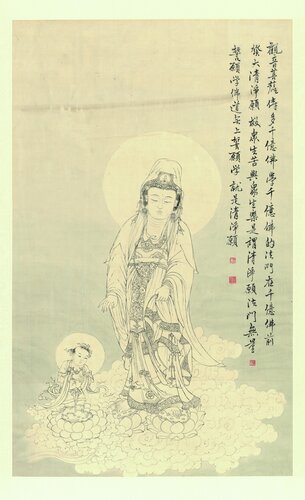 觀音菩薩侍多千億佛學千億佛的法門在千億佛前
發大清淨願衆生苦與衆生樂是謂清淨願法門無量
誓願學佛道无上誓願學就是清淨願